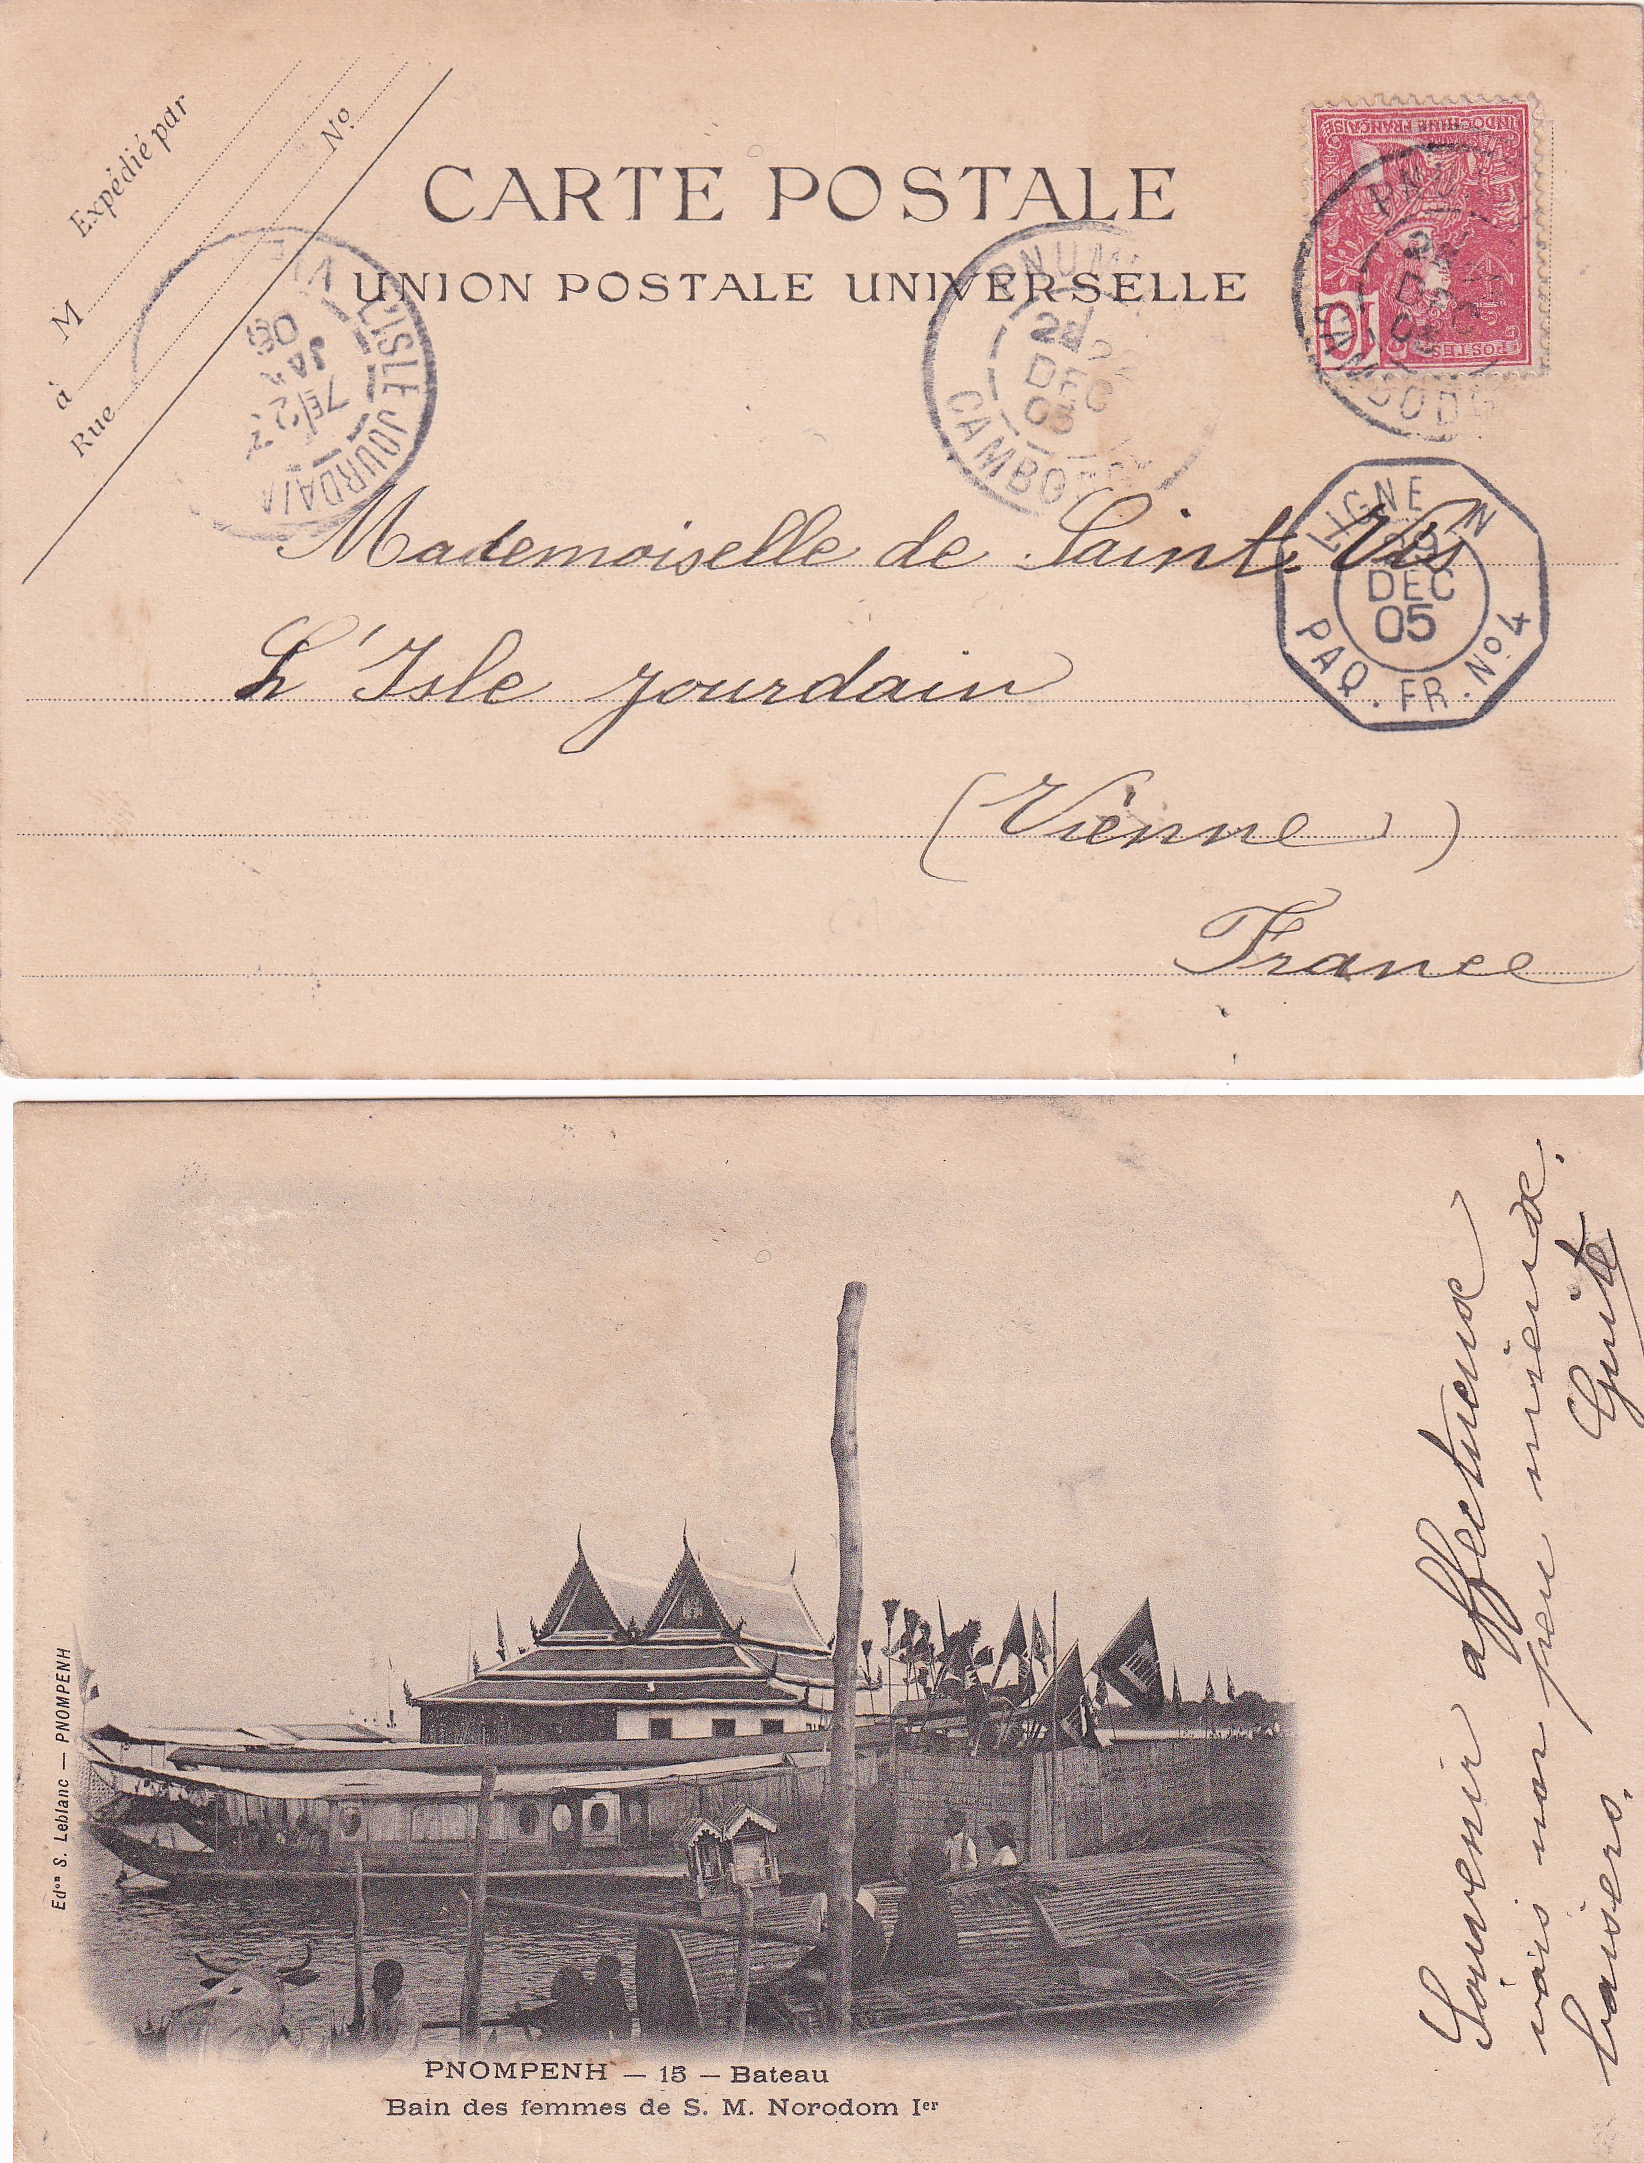 Expédié par
M
à
Rue
No
CARTE POSTALE
UNION POSTALE UNIVERSELLE
INDOCHINE FRANÇAISE
POSTES
10
PNUM
DEC
05
CAMBO
L'ISLE JOURDAIN
VIE
7E
JA
06
LIGNE N
29
DEC
05
PAQ. FR. No. 4
Mademoiselle de Saint
L'Isle Jourdain
(Vienne)
France
Edon S. Leblanc — PNOMPENH
PNOMPENH — 15 — Bateau
Bain des femmes de S. M. Norodom Ier
Souvenir affectueux
vais un peu mieux.
baisers. Guite